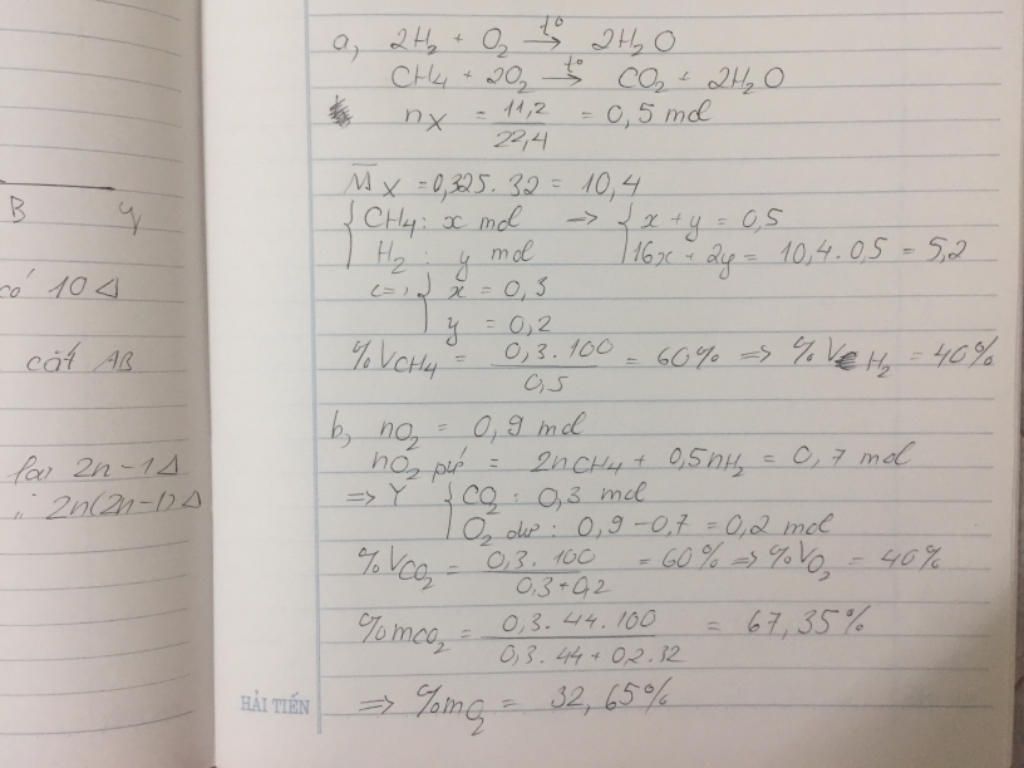 B y
có 10 Δ
cắt AB
2n-1 Δ
2n(2n-1) Δ
a, 2H₂ + O₂ →t° 2H₂O
CH₄ + 2O₂ →t° CO₂ + 2H₂O
nX = 11,2/22,4 = 0,5 mol
M̅X = 0,325.32 = 10,4
{ CH₄: x mol → { x + y = 0,5
H₂: y mol 16x + 2y = 10,4.0,5 = 5,2
<=> { x = 0,3
y = 0,2
%VCH₄ = 0,3.100/0,5 = 60% => %VH₂ = 40%
b, nO₂ = 0,9 mol
nO₂ pứ = 2nCH₄ + 0,5nH₂ = 0,7 mol
=> Y { CO₂: 0,3 mol
O₂ dư: 0,9-0,7 = 0,2 mol
%VCO₂ = 0,3.100/0,3+0,2 = 60% => %VO₂ = 40%
%mCO₂ = 0,3.44.100/0,3.44+0,2.32 = 67,35%
=> %mO₂ = 32,65%
HẢI TIẾN